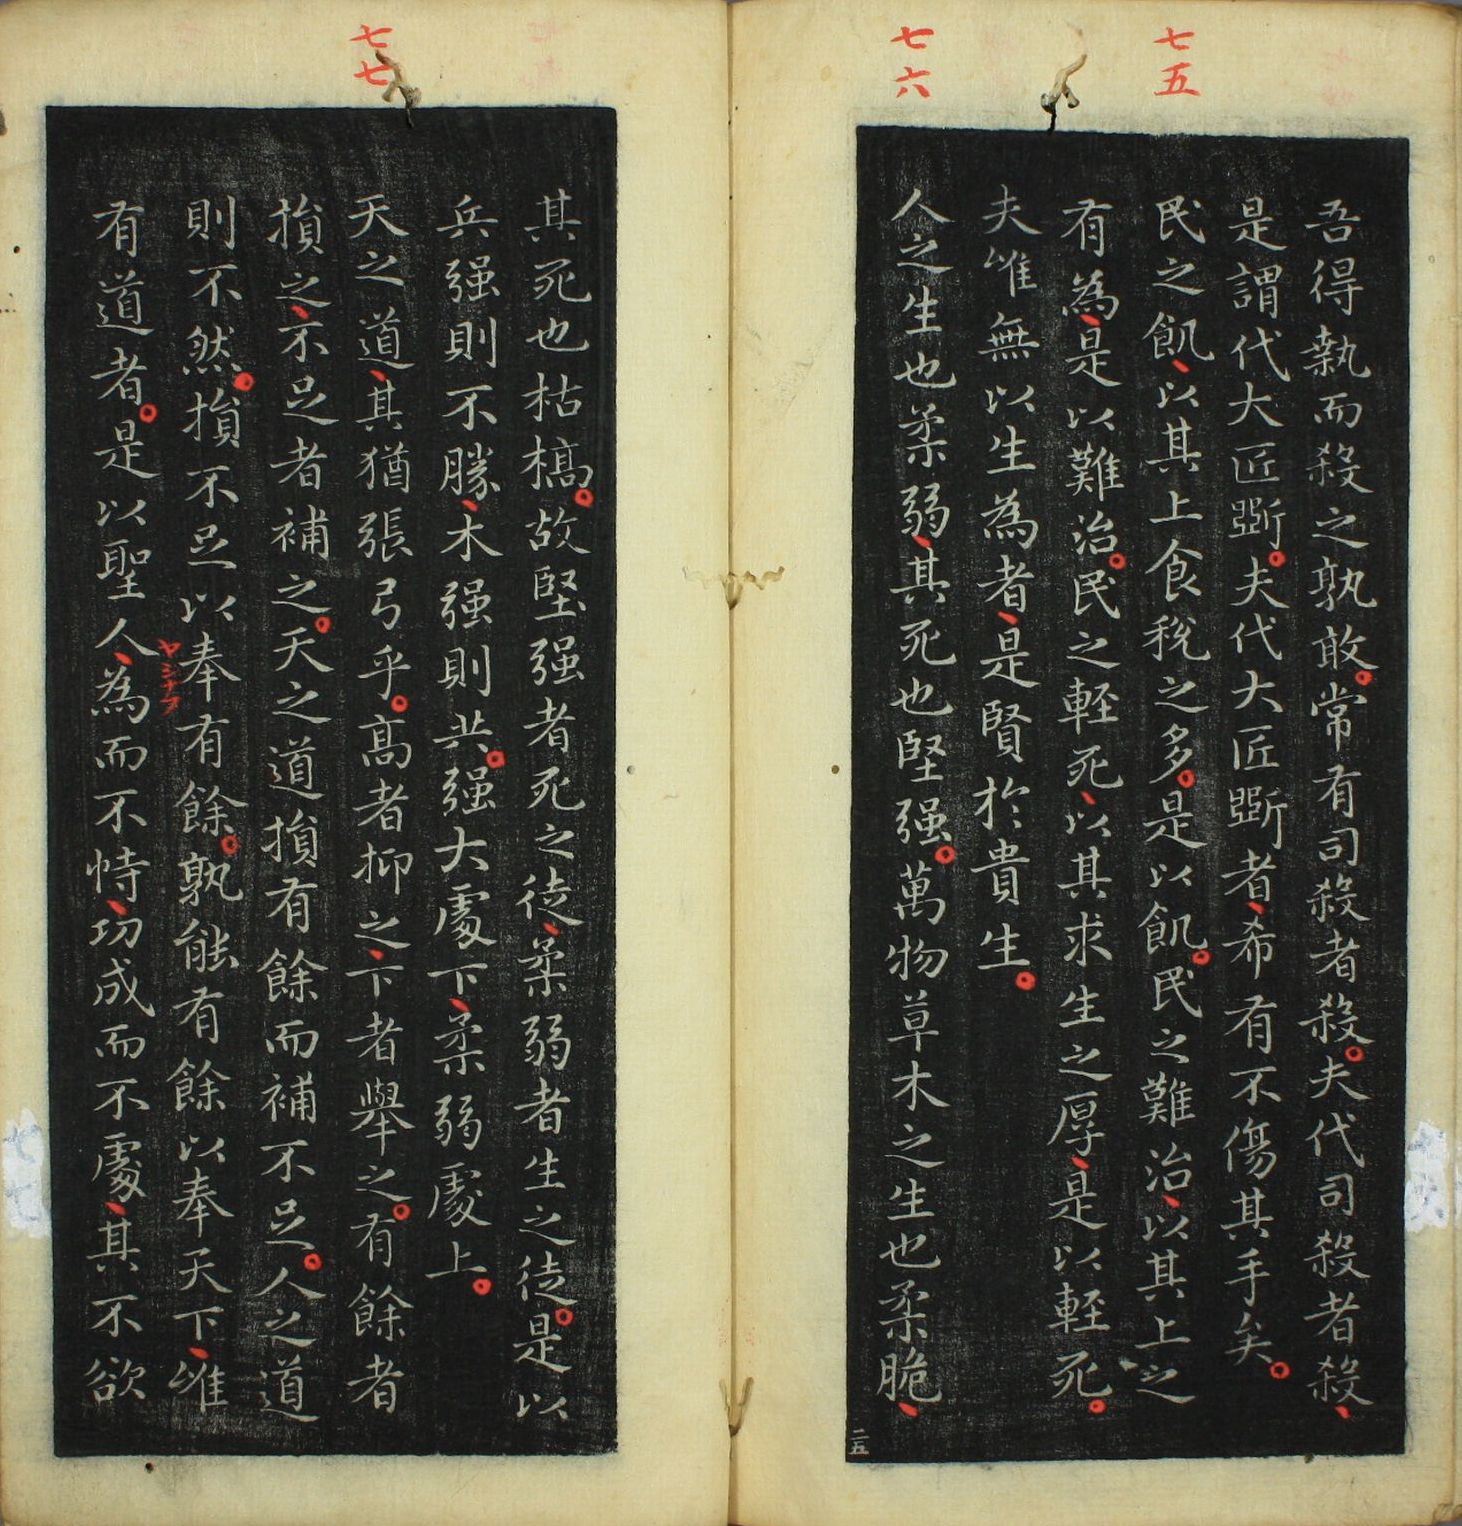 七五
七六
吾得執而殺之孰敢。常有司殺者殺。夫代司殺者殺、
是謂代大匠斲。夫代大匠斲者、希有不傷其手矣。
民之飢、以其上食稅之多。是以飢。民之難治、以其上之
有為、是以難治。民之輕死、以其求生之厚、是以輕死。
夫唯無以生為者、是賢於貴生。
人之生也柔弱、其死也堅强。萬物草木之生也柔脆、
二五
七七
其死也枯槁。故堅强者死之徒、柔弱者生之徒。是以
兵强則不勝、木强則共。强大處下、柔弱處上。
天之道、其猶張弓乎。高者抑之、下者舉之。有餘者
損之、不足者補之。天之道損有餘而補不足。人之道
則不然。損不足以奉有餘。孰能有餘以奉天下、唯
有道者。是以聖人、為而不恃、功成而不處、其不欲
ヤシナフ